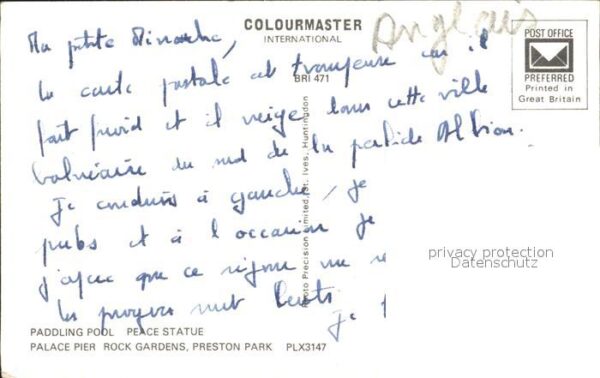 COLOURMASTER
INTERNATIONAL
Anglais
POST OFFICE
PREFERRED
Printed in
Great Britain
BRI 471
Ma petite
la carte postale est trompeuse car il
fait froid et il neige dans cette ville
balnéaire du sud de la perfide Albion.
Je conduis à gauche, je
pubs et à l'occasion je
que ce régime me
les progrès sont lents
Je
Photo Precision Limited, St. Ives, Huntingdon
privacy protection
Datenschutz
PADDLING POOL PEACE STATUE
PALACE PIER ROCK GARDENS, PRESTON PARK PLX3147